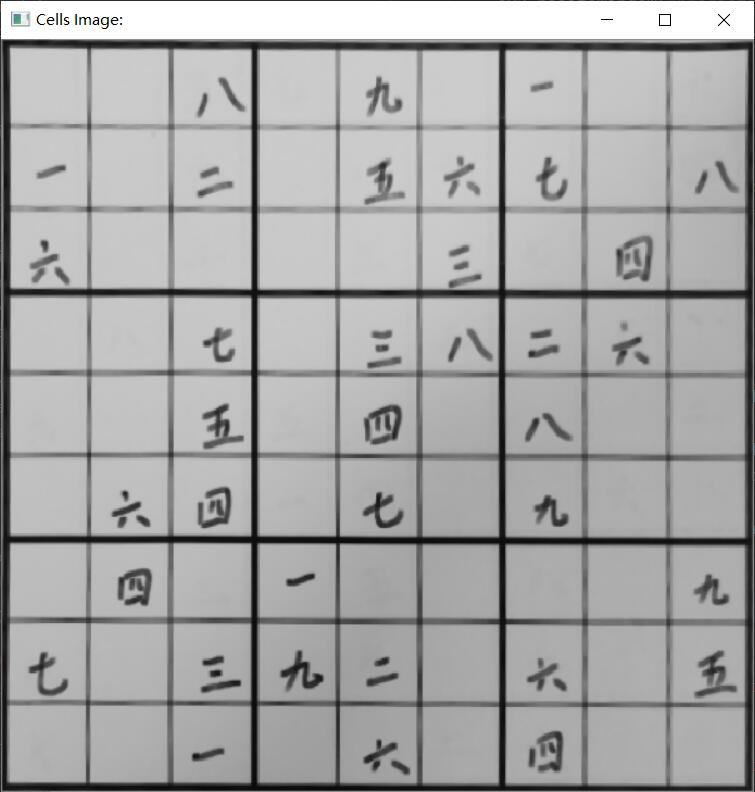 Cells Image:
八 九 一
一 二 五 六 七 八
六 三 四
七 三 八 二 六
五 四 八
六 四 七 九
四 一 九
七 三 九 二 六 五
一 六 四